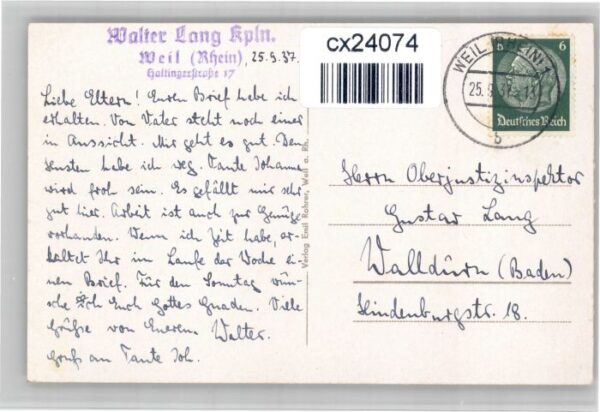 Walter Lang Kpln.
Weil (Rhein), 25.9.37.
Haltingerstraße 17
cx24074
Liebe Eltern! Euren Brief habe ich
erhalten. Von Vater steht noch einer
in Aussicht. Mir geht es gut. Den
sensten habe ich weg. Tante Johanna
wird froh sein. Es gefällt mir sehr
gut hier. Arbeit ist auch zur Genüge
vorhanden. Wenn ich Zeit habe, er-
haltet Ihr im Laufe der Woche ei-
nen Brief. Für den Sonntag wün-
sche Ich Euch Gottes Gnaden. Viele
Grüße von Eurem Walter.
Gruß an Tante Joh.
Verlag Emil Rohrer, Weil a. Rh.
WEIL (RHEIN)
25.9.37
b
6
Deutsches Reich
Herrn Oberjustizinspektor
Gustav Lang
Walldürn (Baden)
Hindenburgstr. 18.